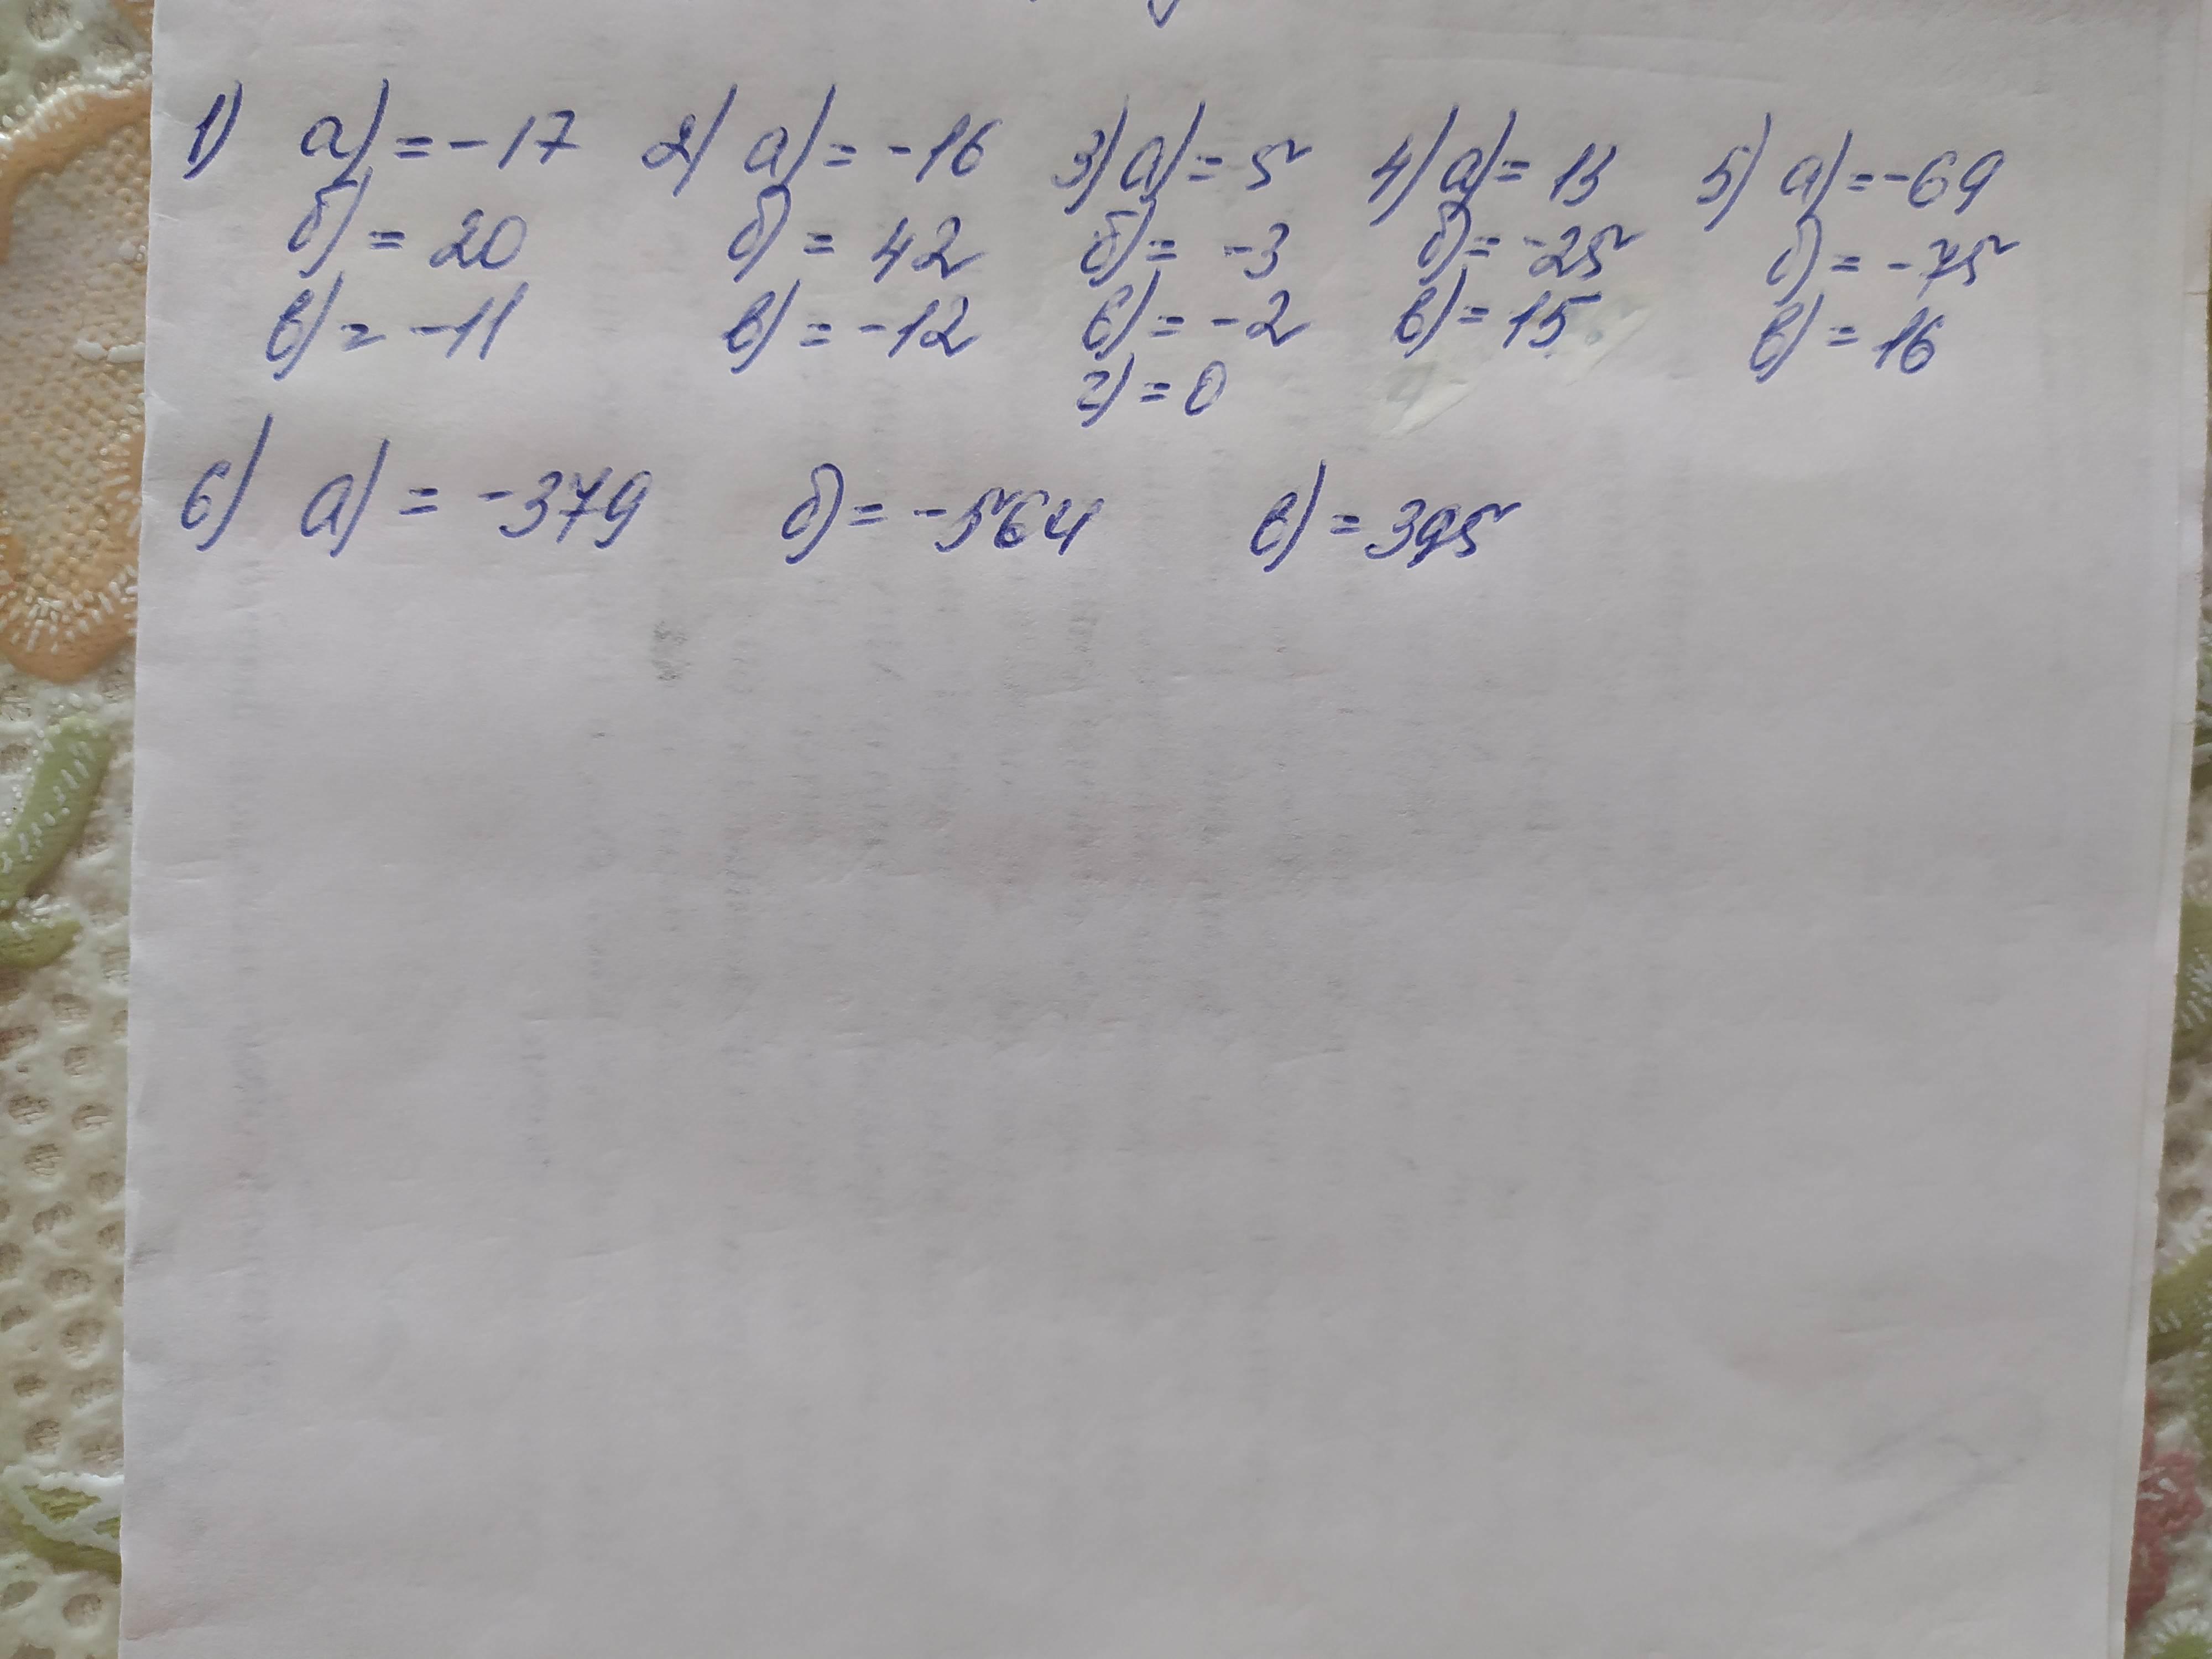 1) а) = -17 2) а) = -16 3) а) = 5 4) а) = 13 5) а) = -69
б) = 20 б) = 42 б) = -3 б) = -25 б) = -75
в) = -11 в) = -12 в) = -2 в) = 15 в) = 16
г) = 0
6) а) = -379 б) = -564 в) = 395